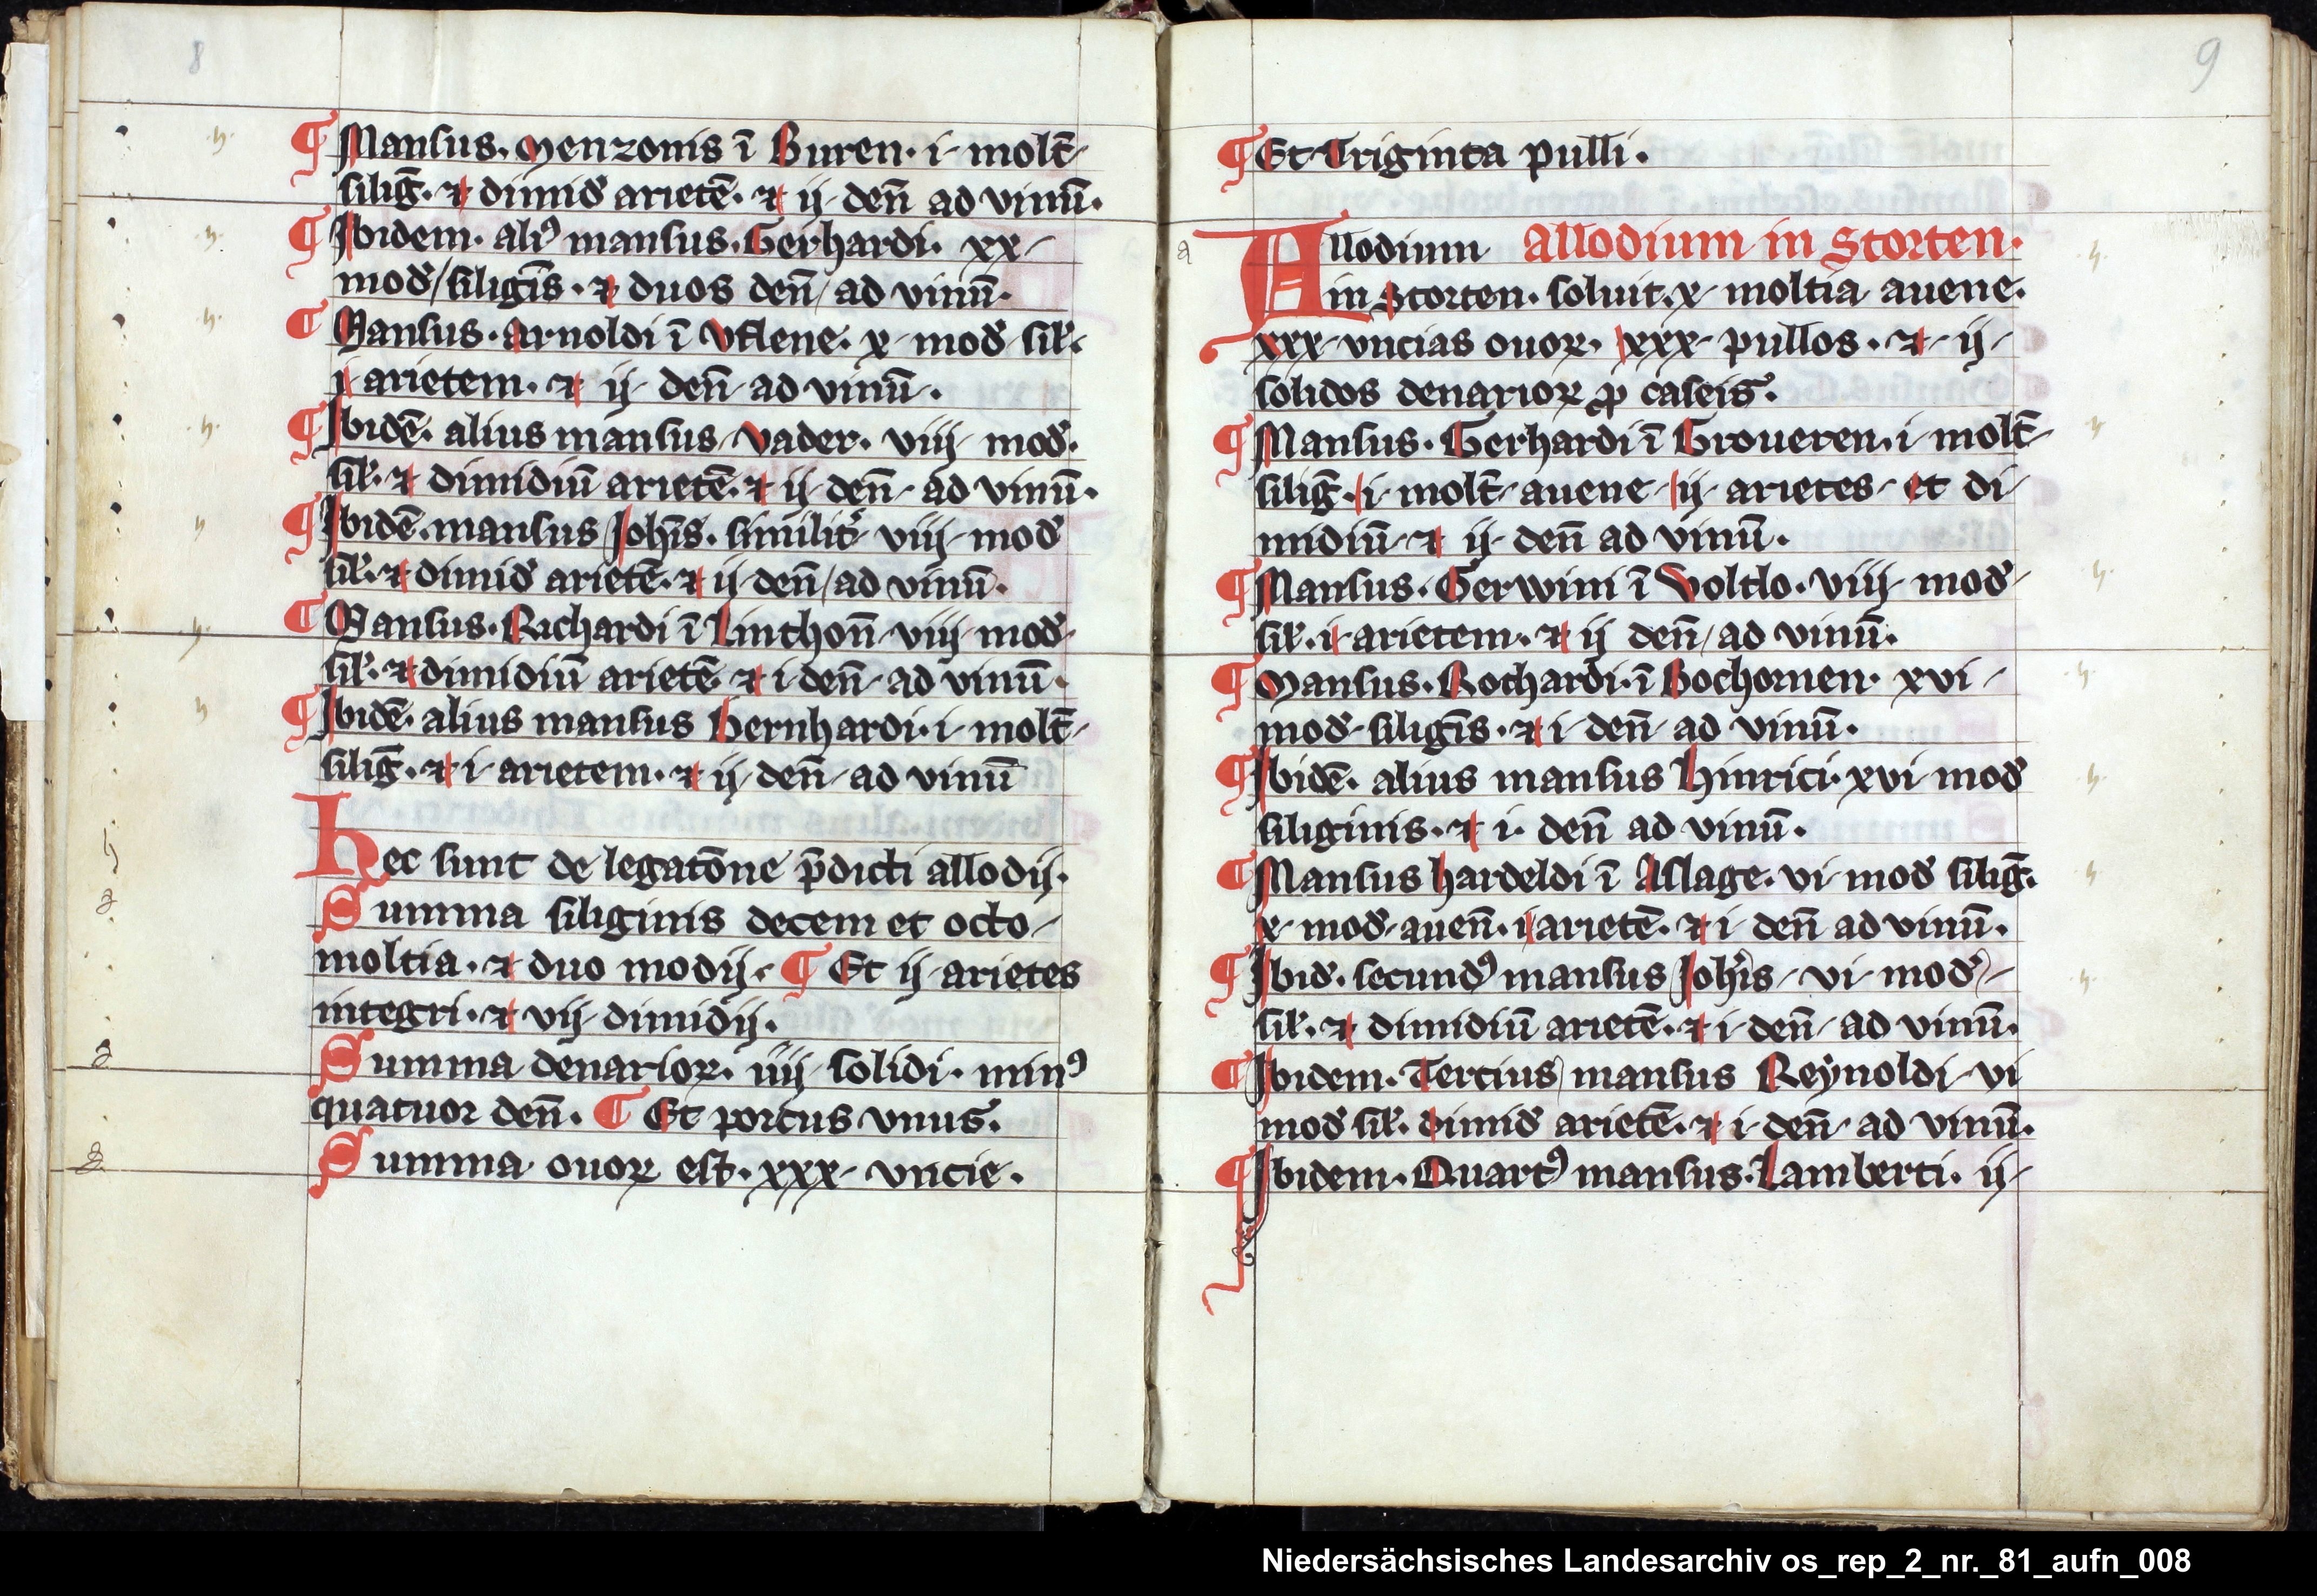 8
¶ Mansus. Menzonis ī Buren. i. molt̄
siliḡ. ⁊ dimid̛ arietē. ⁊ ij den̄ ad vinū.
¶ Ibidem. aliꝰ mansus. Gerhardi. xx
mod̛ siligīs. ⁊ duos den̄ ad vinū.
¶ Mansus. Arnoldi ī Vflene. x mod̛ sil̛.
i arietem. ⁊ ij den̄ ad vinū.
¶ Ibidē. alius mansus Vader. viij mod̛.
sil̛. ⁊ dimidiū arietē. ⁊ ij den̄ ad vinū.
¶ Ibidē. mansus Joh̄is. similit̛ viij mod̛
sil̛. ⁊ dimid̛ arietē. ⁊ ij den̄ ad vinū.
¶ Mansus. Richardi ī Linthon̄ viij mod̛
sil̛. ⁊ dimidiū arietē ⁊ i den̄ ad vinū.
¶ Ibidē. alius mansus Bernhardi. i. molt̄
siliḡ. ⁊ i arietem. ⁊ ij den̄ ad vinū
Hec sunt de legatōne p̄dicti allodij.
Summa siliginis decem et octo
moltia. ⁊ duo modij. ¶ Et ij arietes
integri. ⁊ vij dimidij.
Summa denarioꝝ. iiij solidi. minꝰ
quatuor den̄. ¶ Et porcus vnus.
Summa ouoꝝ est. xxx vncie.
9
¶ Et Triginta pulli.
Allodium Allodium in Storten.
in Storten. soluit. x moltia auene.
xxx vncias ouoꝝ. xxx pullos. ⁊ ij
solidos denarioꝝ ꝓ caseis.
¶ Mansus. Gerhardi ī Groueren. i molt̄
siliḡ. i molt̄ auene ij arietes et di
midiū ⁊ ij den̄ ad vinū.
¶ Mansus. Gerwini ī Voltlo. viij mod̛
sil̛. i arietem. ⁊ ij den̄ ad vinū.
¶ Mansus. Rothardi. ī Bochornen. xvi
mod̛ siligīs. ⁊ i den̄ ad vinū.
¶ Ibidē. alius mansus Hinrici. xvi mod̛
siliginis. ⁊ i. den̄ ad vinū.
¶ Mansus Hardeldi ī Aslage. vi mod̛ siliḡ.
x mod̛ auen̄. i arietē. ⁊ i den̄ ad vinū.
¶ Ibid̛. secundꝰ mansus Joh̄is vi mod̛
sil̛. ⁊ dimidiū arietē. ⁊ i den̄ ad vinū.
¶ Ibidem. Tercius mansus Reynoldi vi
mod̛ sil̛. dimid̛ arietē. ⁊ i den̄ ad vinū.
¶ Ibidem. Quartꝰ mansus. Lamberti. ij
Niedersächsisches Landesarchiv os_rep_2_nr._81_aufn_008